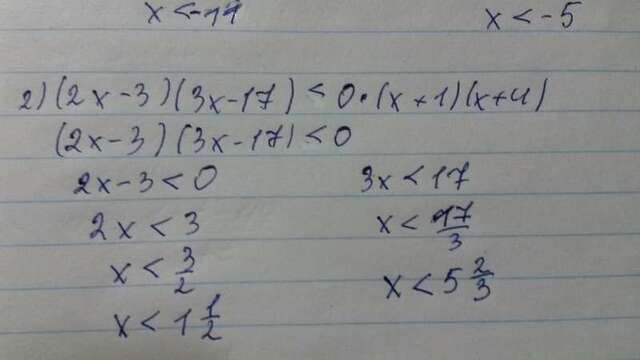 x < -11 x < -5
2) (2x-3)(3x-17) < 0·(x+1)(x+4)
(2x-3)(3x-17) < 0
2x-3 < 0 3x < 17
2x < 3 x < 17/3
x < 3/2 x < 5 2/3
x < 1 1/2